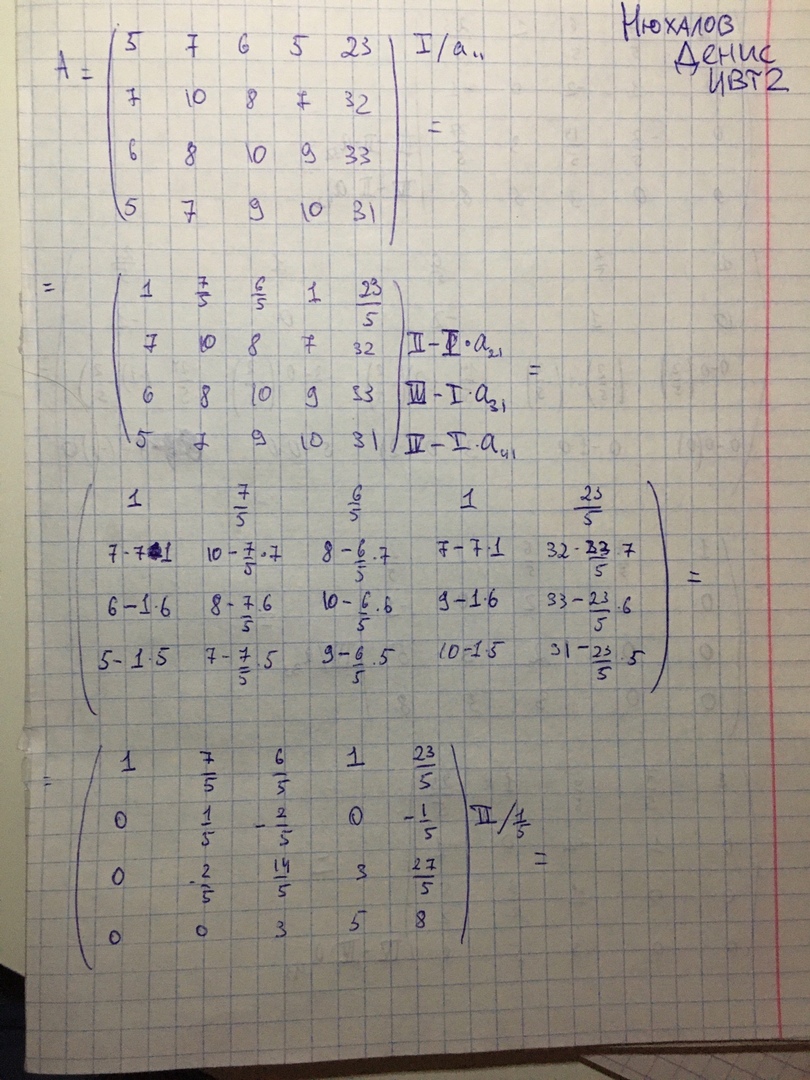 Нюхалов
Денис
ИВТ2
A = ( 5 7 6 5 23 ) I/a₁₁
7 10 8 7 32
6 8 10 9 33 =
5 7 9 10 31
= ( 1 7/5 6/5 1 23/5 )
7 10 8 7 32 II - I·a₂₁
6 8 10 9 33 III - I·a₃₁ =
5 7 9 10 31 IV - I·a₄₁
( 1 7/5 6/5 1 23/5 )
7-7·1 10-7/5·7 8-6/5·7 7-7·1 32-23/5·7
6-1·6 8-7/5·6 10-6/5·6 9-1·6 33-23/5·6 =
5-1·5 7-7/5·5 9-6/5·5 10-1·5 31-23/5·5
= ( 1 7/5 6/5 1 23/5 )
0 1/5 -2/5 0 -1/5 II/1/5
0 -2/5 14/5 3 27/5 =
0 0 3 5 8